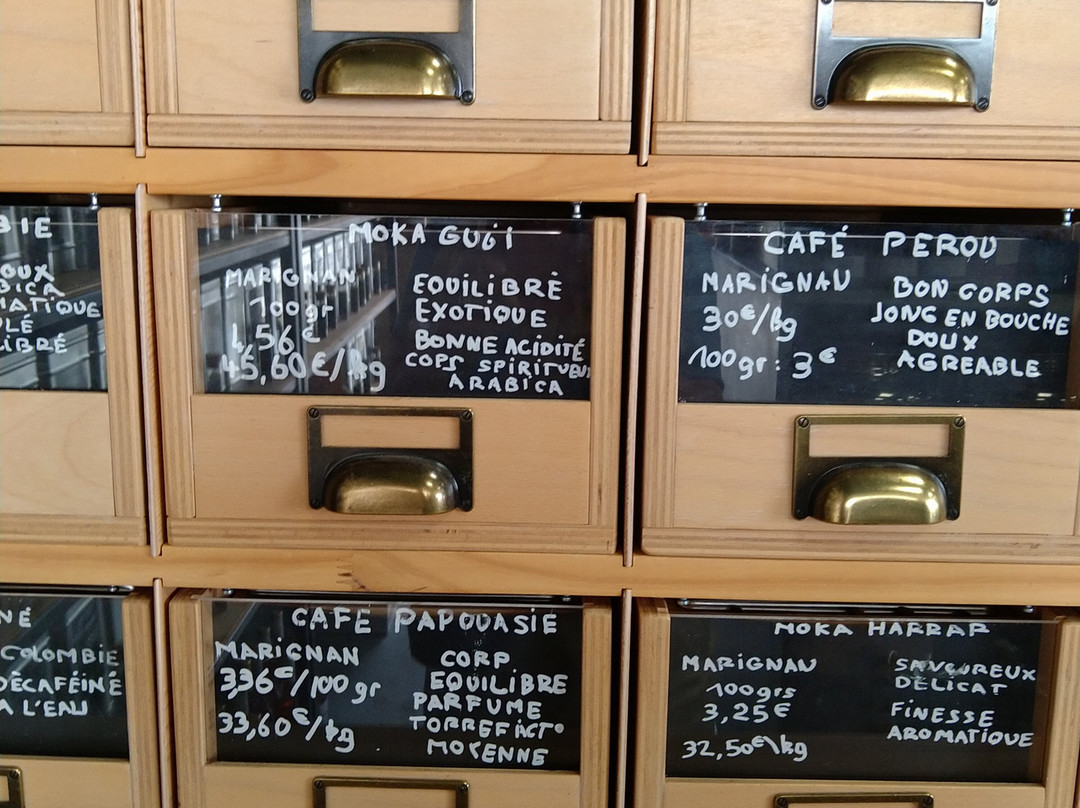 BIE
OUX
BICA
MATIQUE
LÉ
LIBRÉ
MOKA GUGI
MARIGNAN
100gr
4,56€
45,60€/kg
EQUILIBRÈ
EXOTIQUE
BONNE ACIDITÉ
COPS SPIRITUEU
ARABICA
CAFÉ PEROU
MARIGNAN
30€/kg
100gr: 3€
BON CORPS
JONG EN BOUCHE
DOUX
AGREABLE
NÉ
COLOMBIE
DÈCAFÉINÉ
A L'EAU
CAFE PAPOUASIE
MARIGNAN
3,36€/100gr
33,60€/kg
CORP
EQUILIBRE
PARFUME
TORREFACT°
MOYENNE
MOKA HARRAR
MARIGNAN
100grs
3,25€
32,50€\kg
SAVOUREUX
DÉLICAT
FINESSE
AROMATIQUE